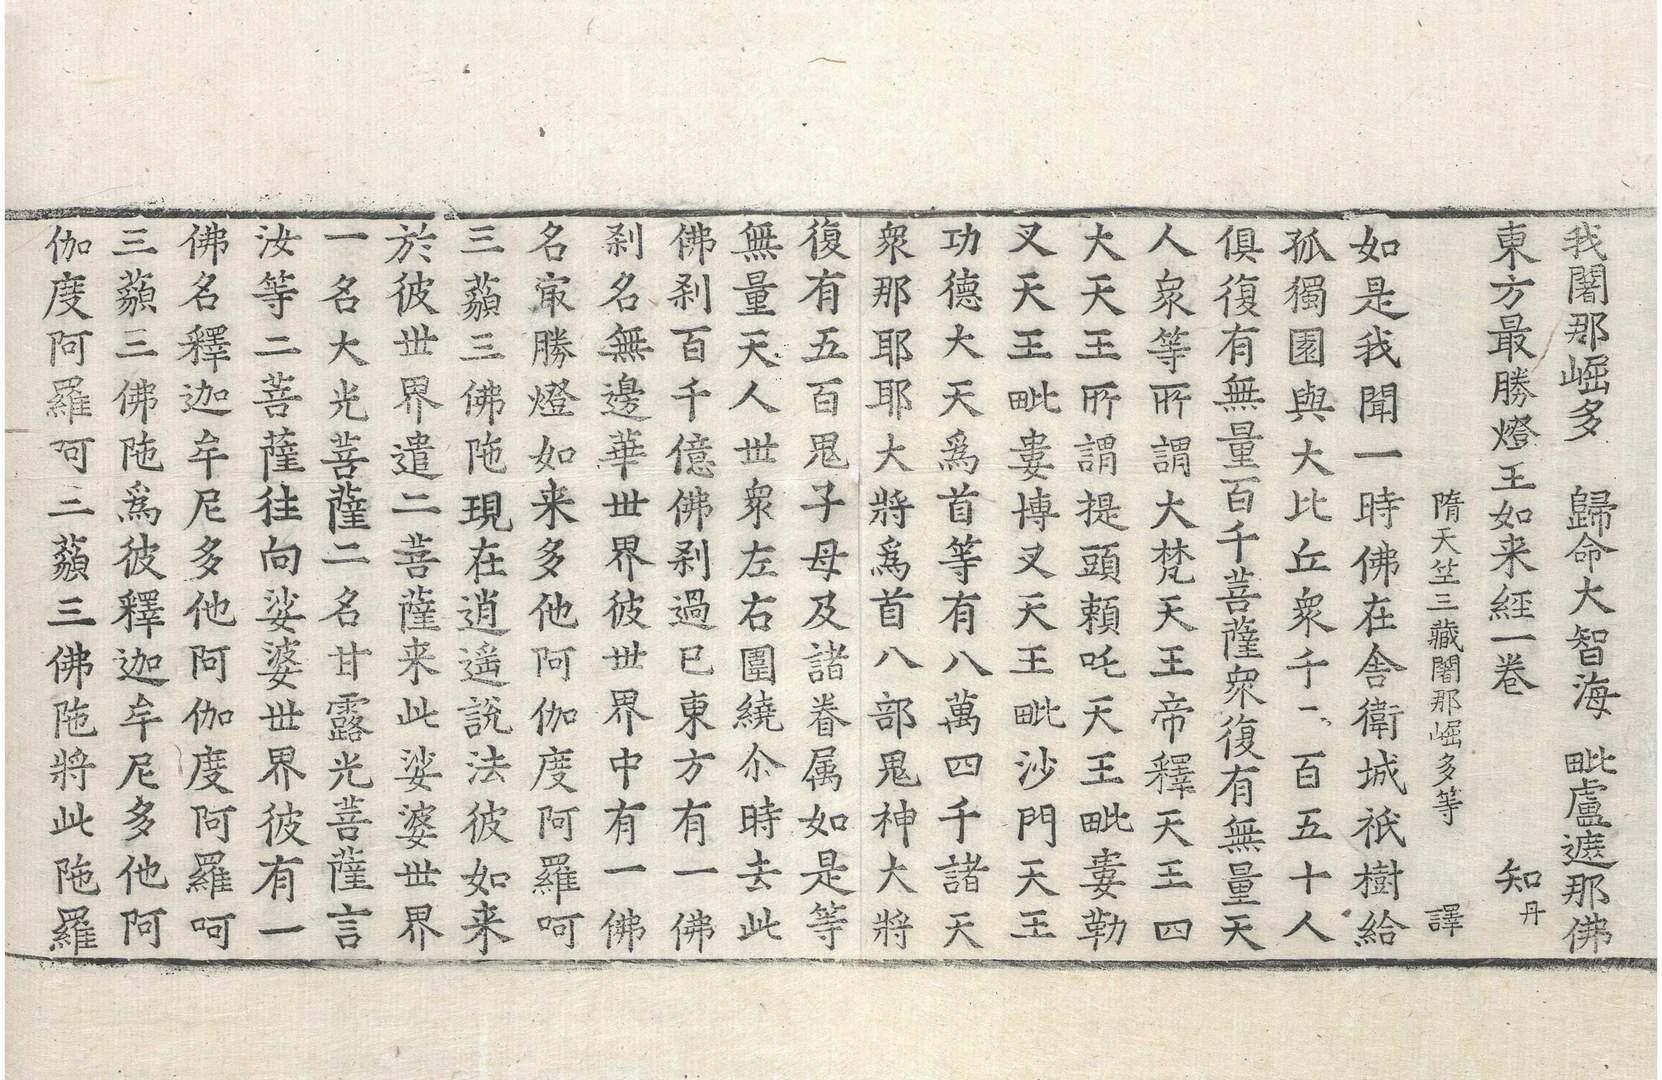 我闍那崛多　歸命大智海　毗盧遮那佛
東方最勝燈王如来經一卷　知丹
隋天竺三藏闍那崛多等　譯
如是我聞一時佛在舍衛城祇樹給
孤獨園與大比丘衆千二百五十人
俱復有無量百千菩薩衆復有無量天
人衆等所謂大梵天王帝釋天王四
大天王所謂提頭賴吒天王毗婁勒
叉天王毗婁博叉天王毗沙門天王
功德大天爲首等有八萬四千諸天
衆那耶耶大將爲首八部鬼神大將
復有五百鬼子母及諸眷属如是等
無量天人世衆左右圍繞尒時去此
佛刹百千億佛刹過已東方有一佛
刹名無邊華世界彼世界中有一佛
名㝡勝燈如来多他阿伽度阿羅呵
三藐三佛陁現在逍遥說法彼如来
於彼世界遣二菩薩来此娑婆世界
一名大光菩薩二名甘露光菩薩言
汝等二菩薩往向娑婆世界彼有一
佛名釋迦牟尼多他阿伽度阿羅呵
三藐三佛陁爲彼釋迦牟尼多他阿
伽度阿羅呵三藐三佛陁將此陁羅